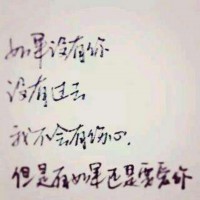 如果没有你
没有过去
我不会有伤心.
但是有如果还是要爱你